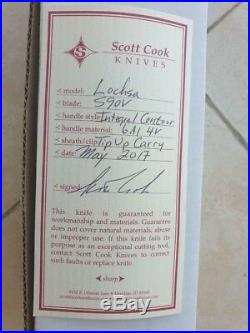 Scott Cook
KNIVES
model: Lochsa
blade: S90V
handle style: Integral Contour
handle material: 6Al 4V
sheath/clip: Tip Up Carry
date: May 2017
signed: Scott Cook
This knife is guaranteed for
workmanship and materials. Guarantee
does not cover natural materials, abuse
or improper use. If this knife fails its
purpose as an exceptional cutting tool,
contact Scott Cook Knives to correct
such faults or replace knife.
sharp